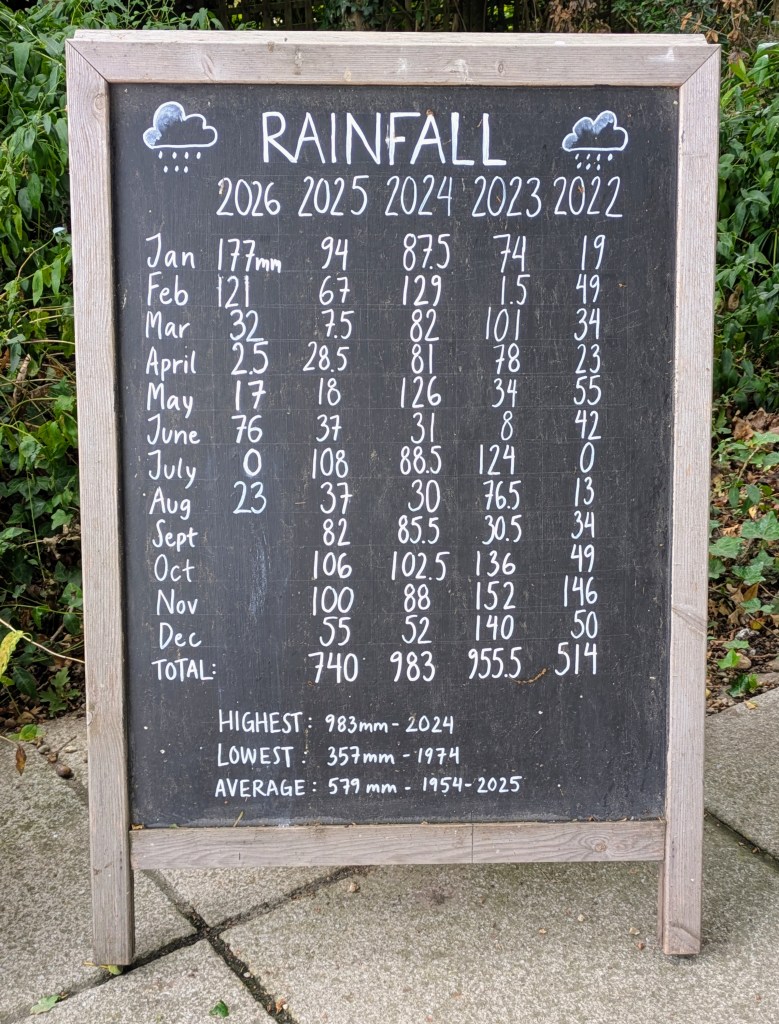 RAINFALL
2026 2025 2024 2023 2022
Jan 177mm 94 87.5 74 19
Feb 121 67 129 1.5 49
Mar 32 7.5 82 101 34
April 2.5 28.5 81 78 23
May 17 18 126 34 55
June 76 37 31 8 42
July 0 108 88.5 124 0
Aug 23 37 30 76.5 13
Sept 82 85.5 30.5 34
Oct 106 102.5 136 49
Nov 100 88 152 146
Dec 55 52 140 50
TOTAL: 740 983 955.5 514
HIGHEST: 983mm - 2024
LOWEST: 357mm - 1974
AVERAGE: 579mm - 1954-2025